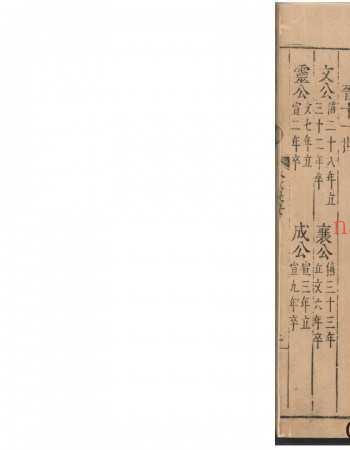 文公僖二十八年立
三十二年卒
襄公僖三十三年
立文六年卒
靈公文七年立
宣二年卒
成公宣三年立
宣九年卒